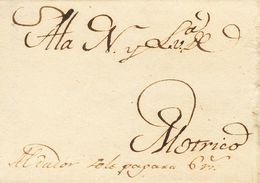 A la N. y L.
Motrico
Al dador se le pagara 6 rs.